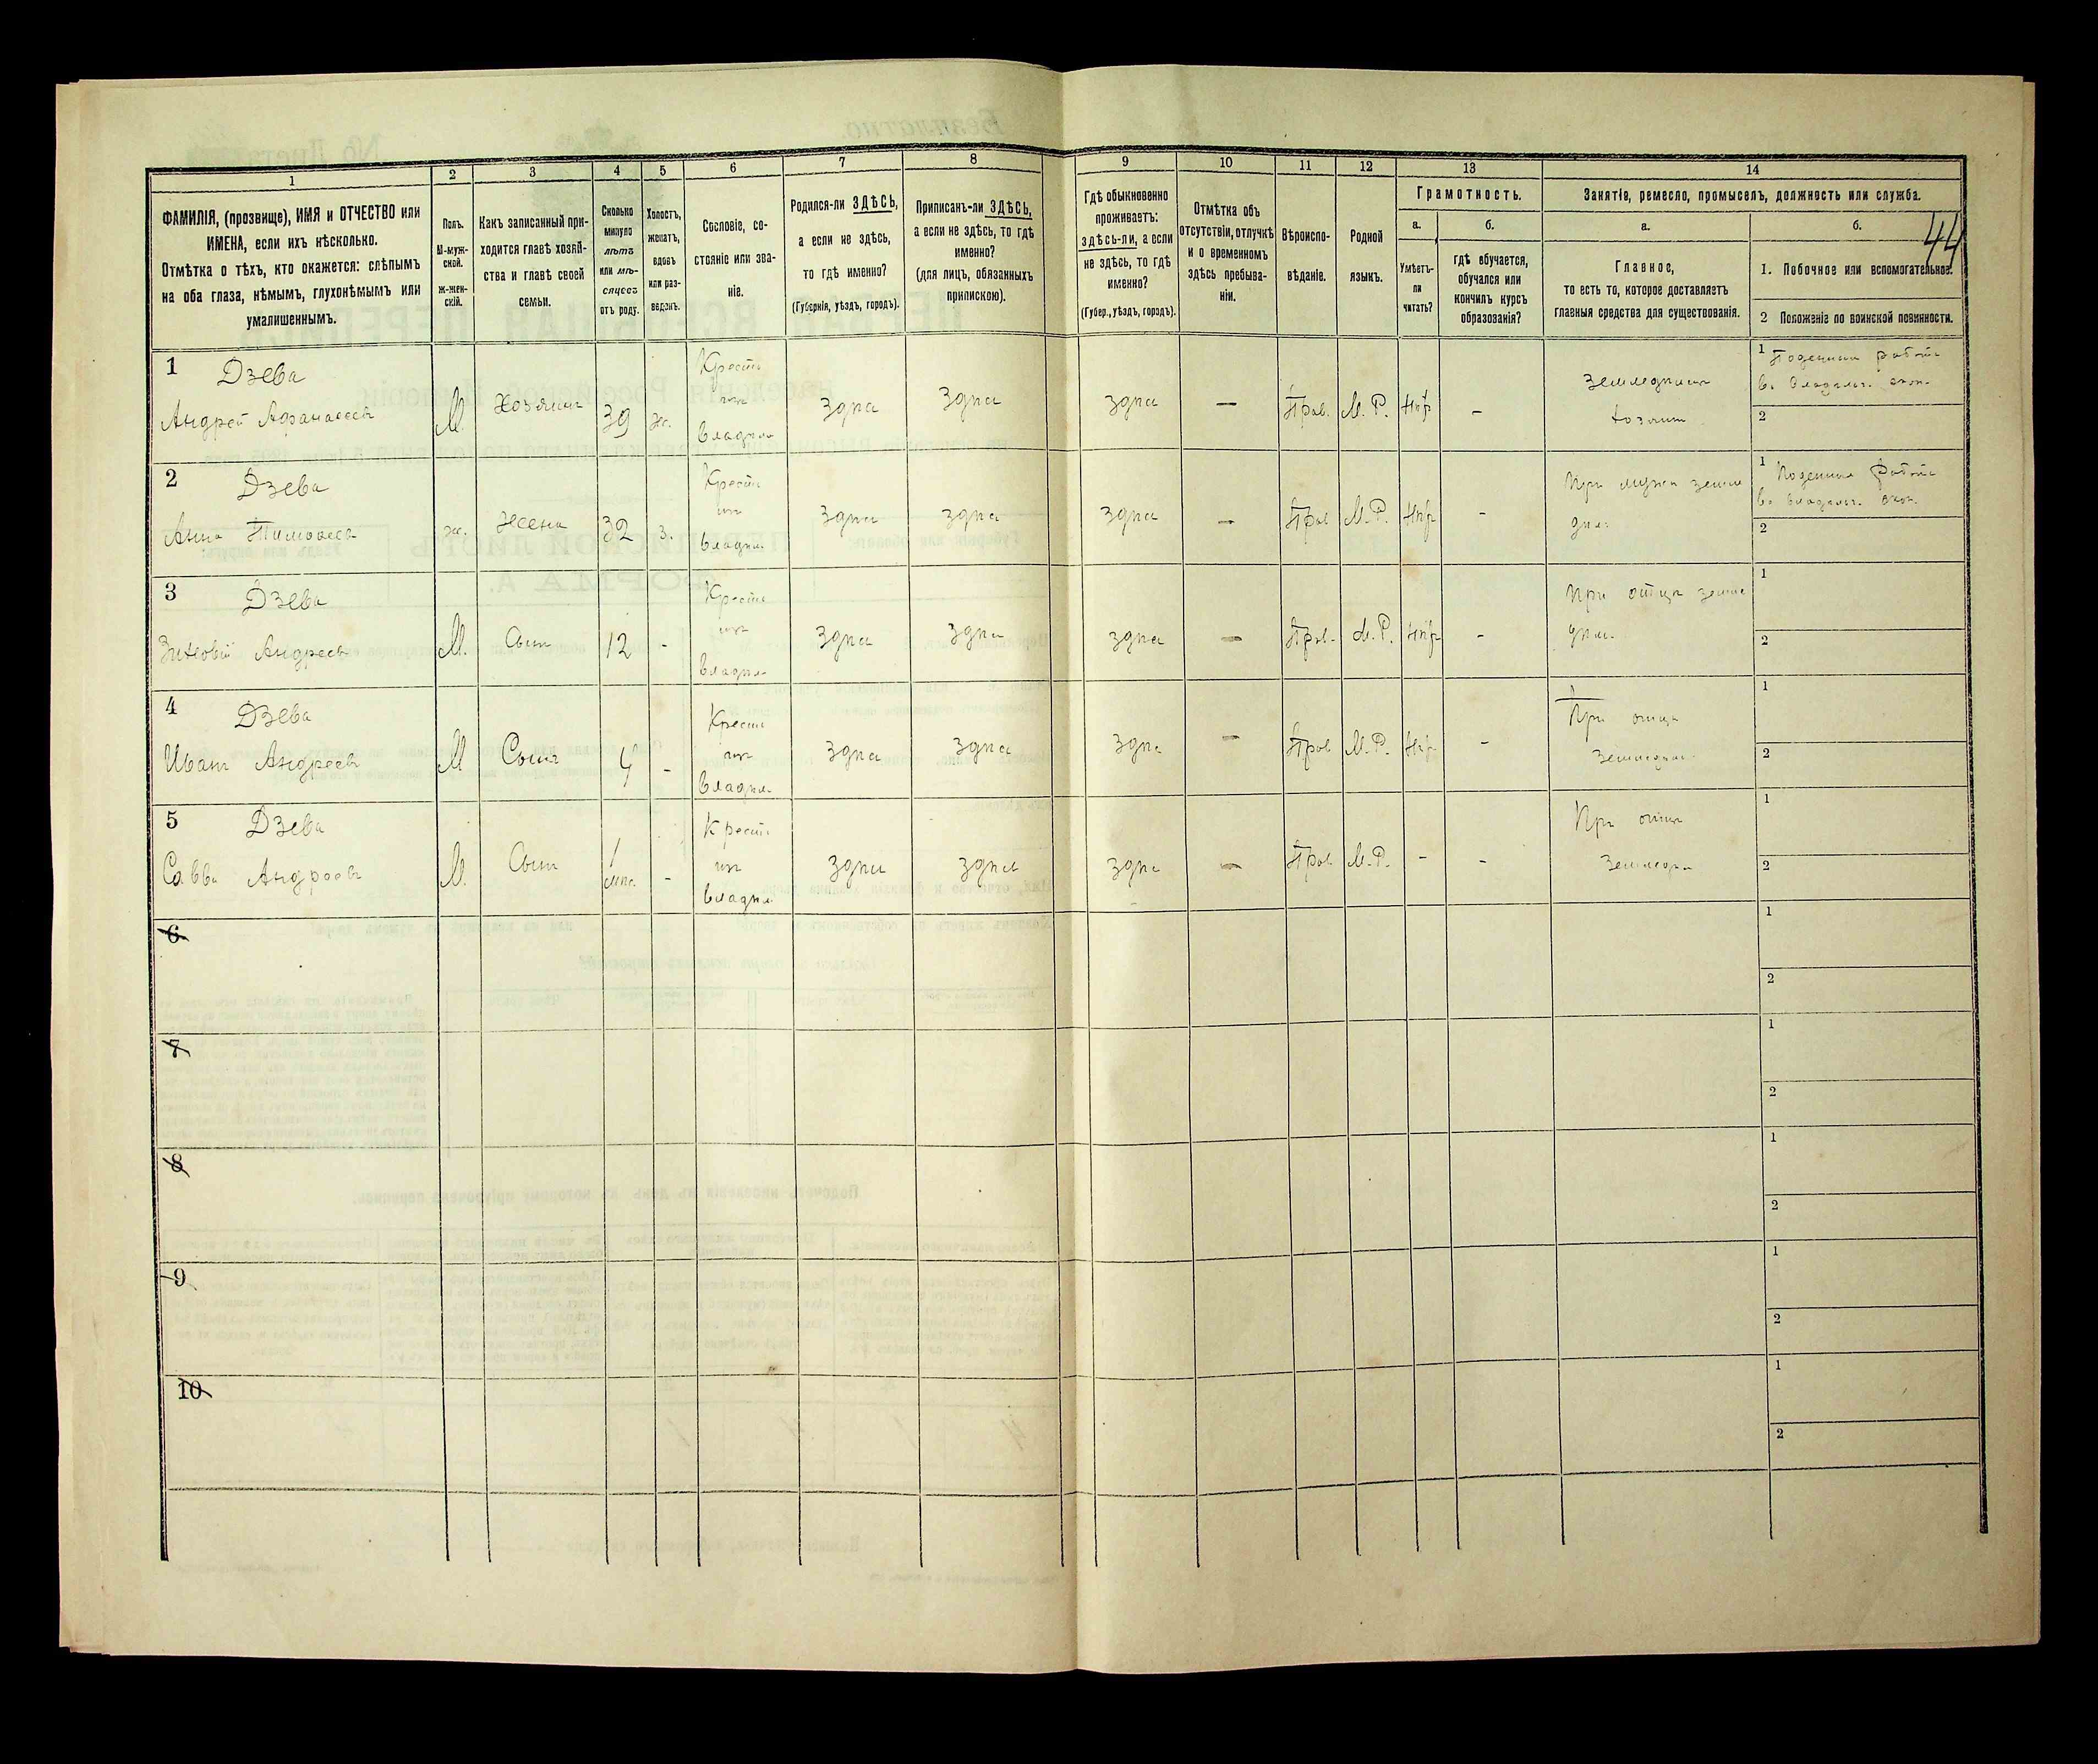 44
1
2
3
4
5
6
7
8
9
10
11
12
13
14
ФАМИЛІЯ, (прозвище), ИМЯ и ОТЧЕСТВО или
ИМЕНА, если ихъ нѣсколько.
Отмѣтка о тѣхъ, кто окажется: слѣпымъ
на оба глаза, нѣмымъ, глухонѣмымъ или
умалишеннымъ.
Полъ.
М-муж-
ской.
ж-жен-
скій.
Какъ записанный при-
ходится главѣ хозяй-
ства и главѣ своей
семьи.
Сколько
минуло
лѣтъ
или мѣ-
сяцевъ
отъ роду.
Холостъ,
женатъ,
вдовъ
или раз-
веденъ.
Сословіе, со-
стояніе или зва-
ніе.
Родился-ли ЗДѢСЬ,
а если не здѣсь,
то гдѣ именно?
(Губернія, уѣздъ, городъ).
Приписанъ-ли ЗДѢСЬ,
а если не здѣсь, то гдѣ
именно?
(для лицъ, обязанныхъ
припискою).
Гдѣ обыкновенно
проживаетъ:
здѣсь-ли, а если
не здѣсь, то гдѣ
именно?
(Губер., уѣздъ, городъ).
Отмѣтка объ
отсутствіи, отлучкѣ
и о временномъ
здѣсь пребыва-
ніи.
Вѣроиспо-
вѣданіе.
Родной
языкъ.
Грамотность.
а.
Умѣетъ-
ли
читать?
б.
гдѣ обучается,
обучался или
кончилъ курсъ
образованія?
Занятіе, ремесло, промыселъ, должность или служба.
а.
Главное,
то есть то, которое доставляетъ
главныя средства для существованія.
б.
1. Побочное или вспомогательное.
2 Положеніе по воинской повинности.
1 Дзева
Андрей Афанасьевъ
М.
Хозяинъ
39
ж.
Крестн
изъ
владѣл
здѣсь
здѣсь
здѣсь
—
Прав.
М. Р.
Нѣт
-
Земледѣлец
хозяин
1 Поденная работа
въ владѣльч. экон.
2
2 Дзева
Анна Тимофеева
ж.
Жена
32
з.
Крестн
изъ
владѣл.
здѣсь
здѣсь
здѣсь
—
Прав
М. Р.
Нѣт
-
При мужѣ земле
дѣл.
1 Поденная работа
въ владѣльч. экон.
2
3 Дзева
Зиновій Андреевъ
М.
Сынъ
12
-
Крестн
изъ
владѣл.
здѣсь
здѣсь
здѣсь
—
Прав.
М. Р.
Нѣт
-
При отцѣ земле
дѣл.
1
2
4 Дзева
Иванъ Андреевъ
М
Сынъ
4
-
Крестн
изъ
владѣл.
здѣсь
здѣсь
здѣсь
—
Прав
М. Р.
Нѣт
-
При отцѣ
земледѣл.
1
2
5 Дзева
Савва Андреевъ
М.
Сынъ
1
мѣс.
-
Крестн
изъ
владѣл
здѣсь
здѣсь
здѣсь
—
Прав
М. Р.
-
-
При отцѣ
земледѣл
1
2
6
1
2
7
1
2
8
1
2
9
1
2
10
1
2